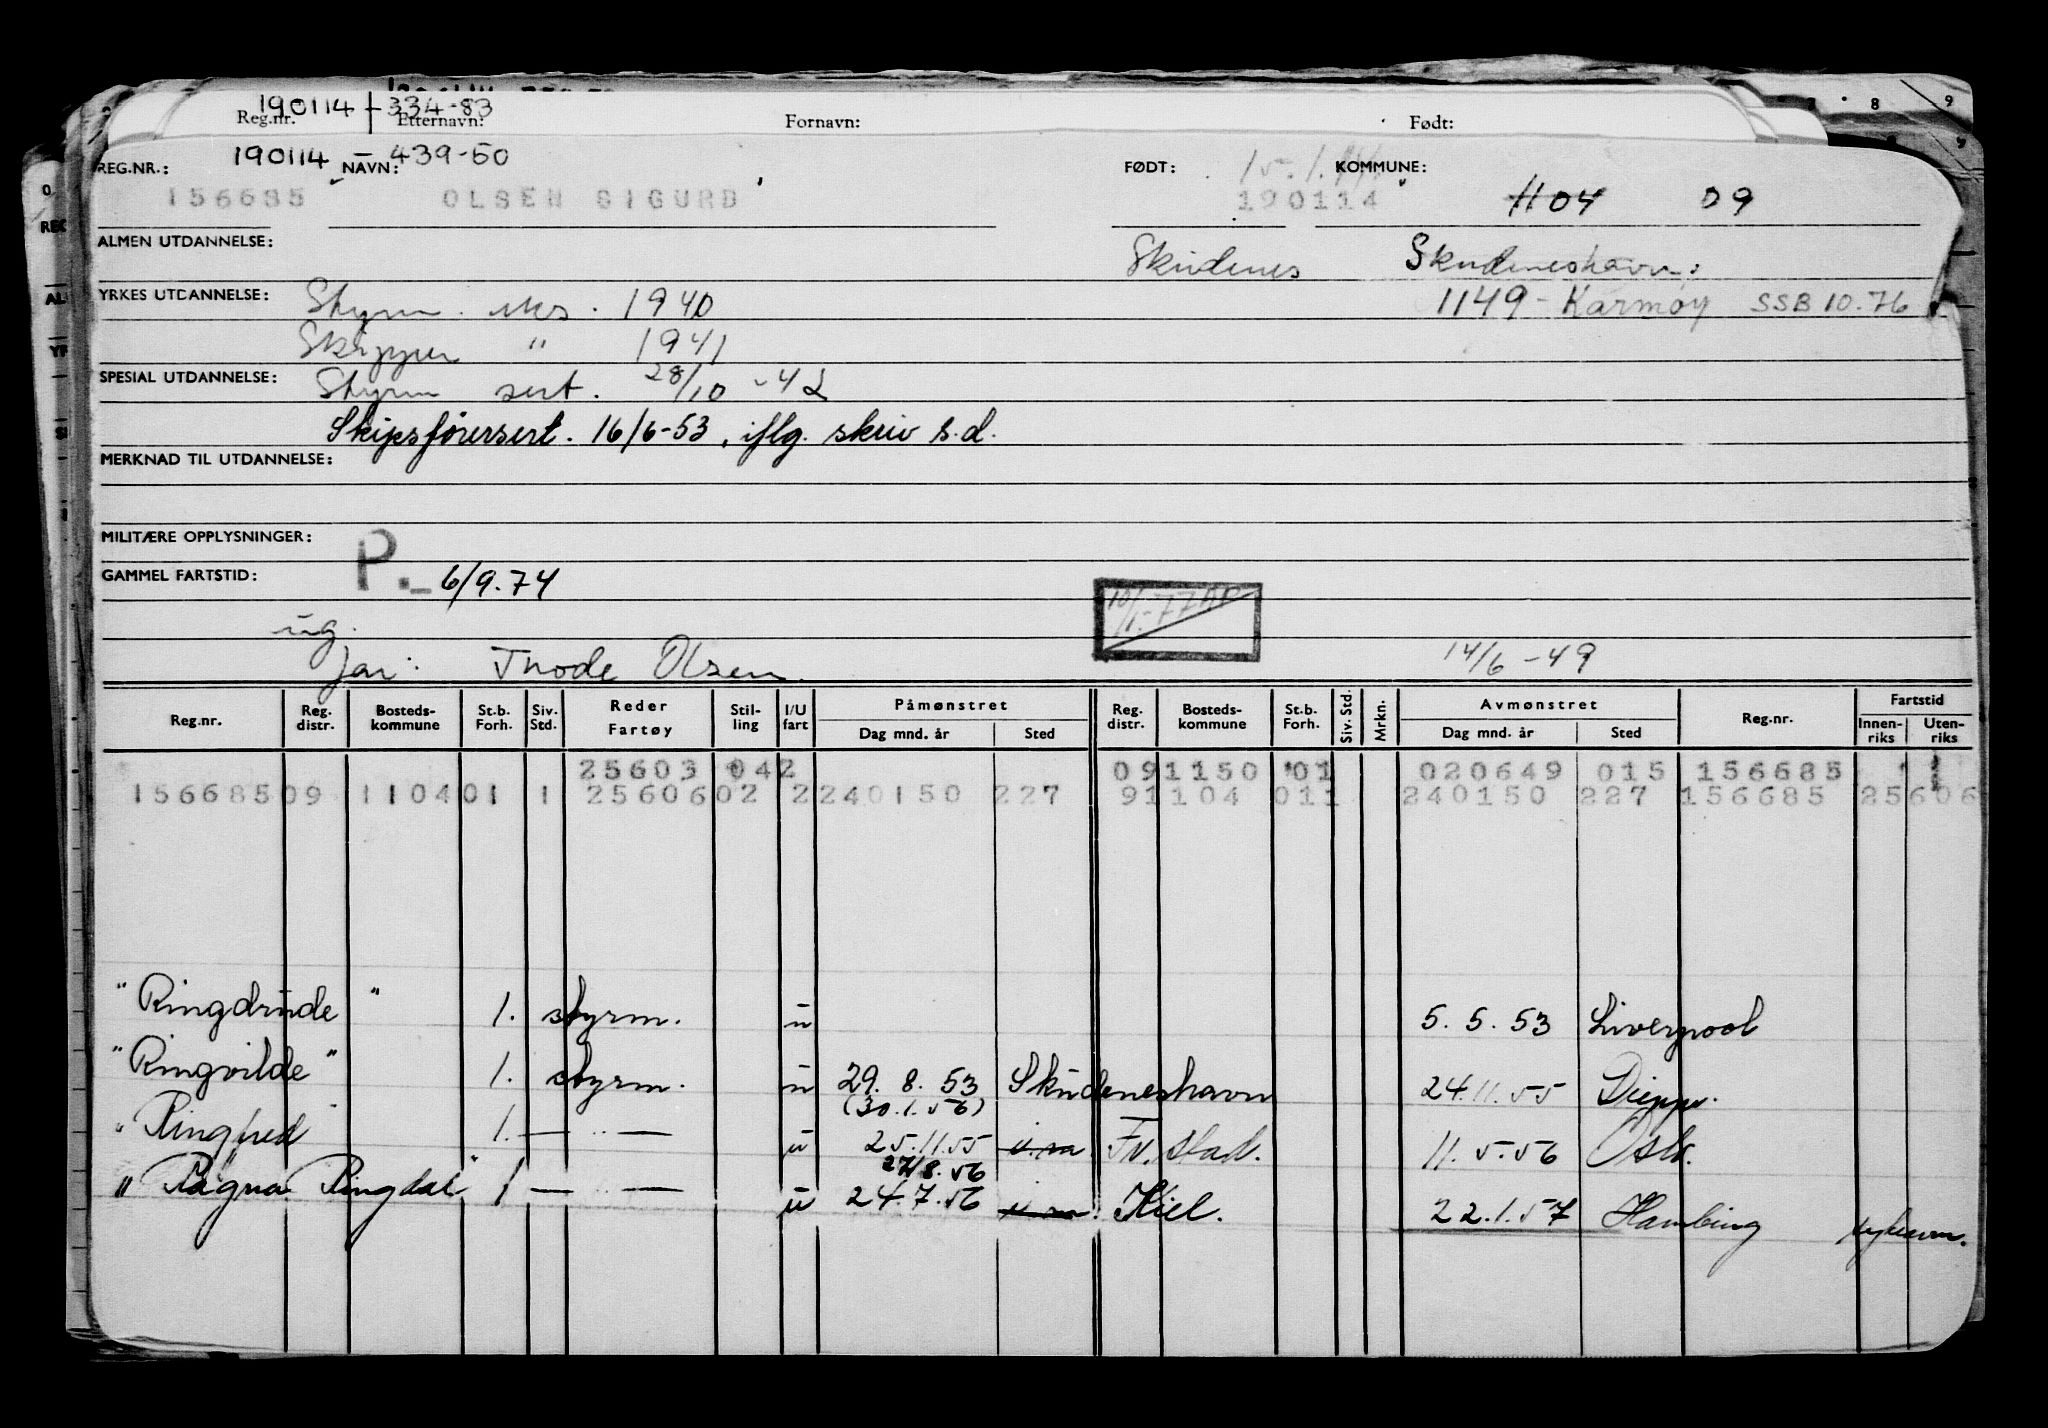 190114 - 334-83
Reg.nr. Etternavn: Fornavn: Født:
190114 - 439-50
REG.NR.: NAVN: FØDT: 15.1. KOMMUNE:
156685 OLSEN SIGURD 190114 1104 09
ALMEN UTDANNELSE: Skudenes Skudeneshavn:
YRKES UTDANNELSE: Styrm. eks. 1940 1149 - Karmøy SSB 10.76
Skipper " 1941
SPESIAL UTDANNELSE: Styrm sert. 28/10 -42
Skipsførersert. 16/6-53, iflg. skriv s.d.
MERKNAD TIL UTDANNELSE:
MILITÆRE OPPLYSNINGER:
GAMMEL FARTSTID: P.- 6/9.74
ug.
far: Thode Olsen. 14/6 -49
Reg.nr. Reg. distr. Bosteds-kommune St.b. Forh. Siv. Std. Reder Fartøy Stil-ling I/U fart Påmønstret Dag mnd. år Sted Reg. distr. Bosteds-kommune St.b. Forh. Siv. Std. Mrkn. Avmønstret Dag mnd. år Sted Reg.nr. Fartstid Innen-riks Uten-riks
25603 042 091150 01 020649 015 156685 1
156685 09 1104 01 1 25606 02 2 240150 227 9 1104 011 240150 227 156685 25606
"Ringdrude" 1. styrm. u 5. 5. 53 Liverpool
"Ringvilde" 1. styrm. u 29. 8. 53 Skudeneshavn 24.11.55 Dieppe.
(30.1.56)
"Ringfred 1. — " — u 25.11.55 Fr. stad. 11.5.56 Oslo.
27/8.56
"Ragna Ringdal" 1 — " — u 24.7.56 Kiel. 22.1.57 Hamburg sykeavm.